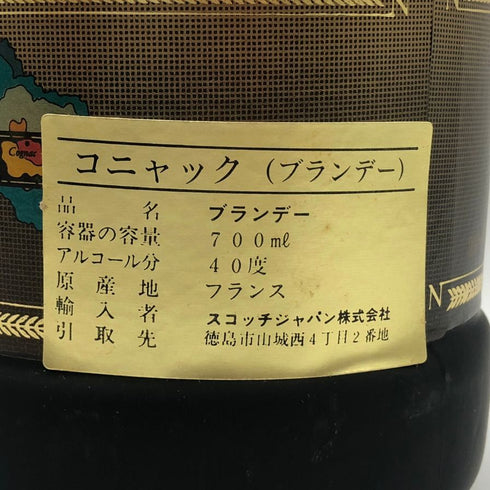 Cognac
コニャック (ブランデー)
品名 ブランデー
容器の容量 700ml
アルコール分 40度
原産地 フランス
輸入者 スコッチジャパン株式会社
引取先 徳島市山城西4丁目2番地
N
N